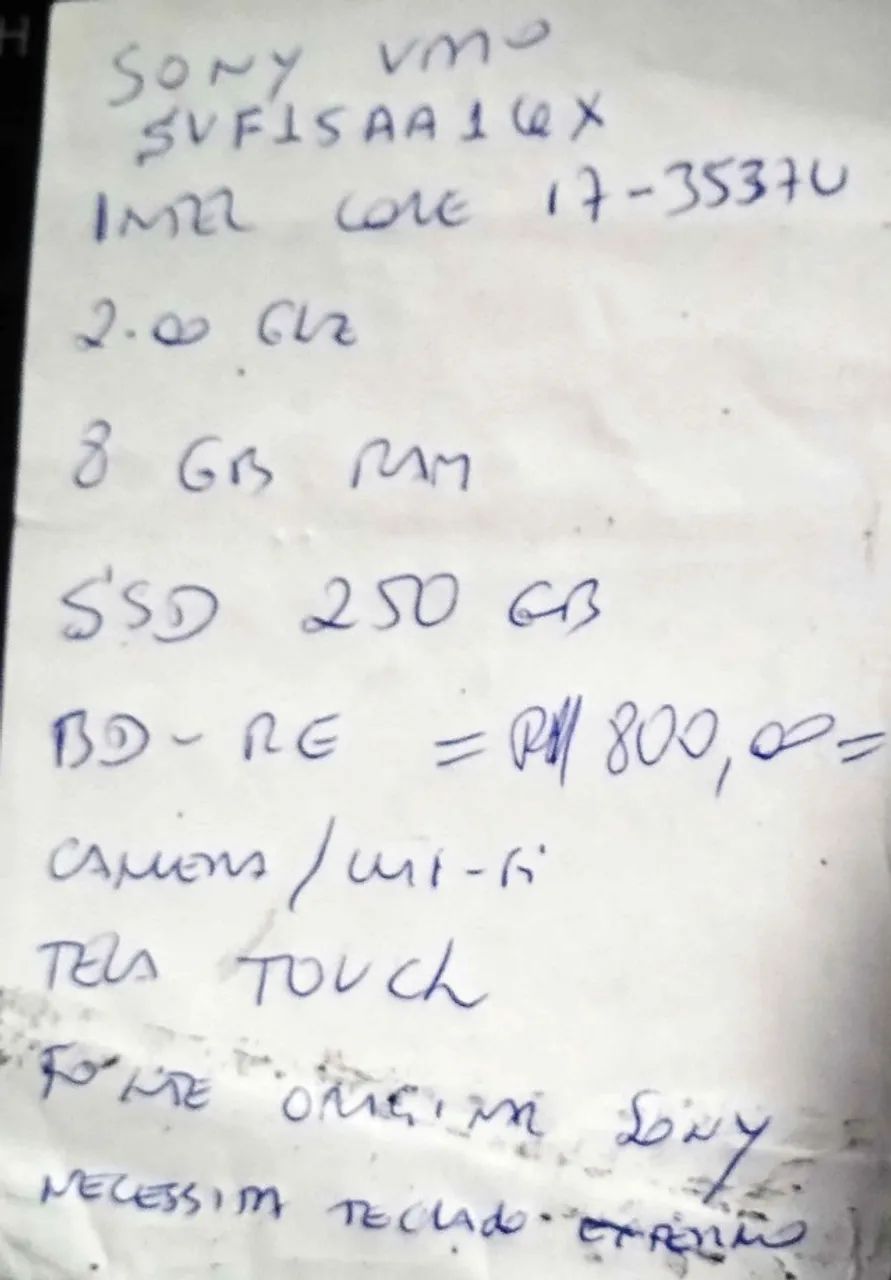 SONY VAIO
SVF15AA1QX
INTEL CORE i7-3537U
2.00 GHz
8 GB RAM
SSD 250 GB
BD-RE = R$ 800,00 =
CAMERA / WI-Fi
TELA TOUCH
FONTE ORIGINAL SONY
NECESSITA TECLADO EXTERNO